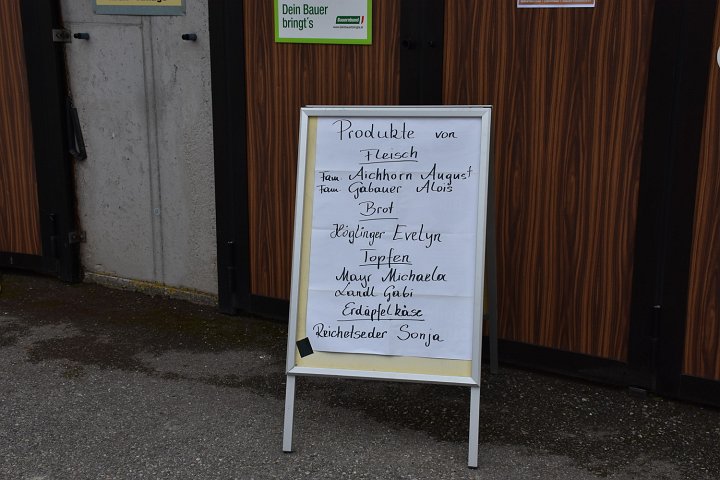 Dein Bauer
bringt's
Bauernbund
Produkte von
Fleisch
Fam Aichhorn August
Fam Gabauer Alois
Brot
Höglinger Evelyn
Topfen
Mayr Michaela
Landl Gabi
Erdäpfelkäse
Reichetseder Sonja